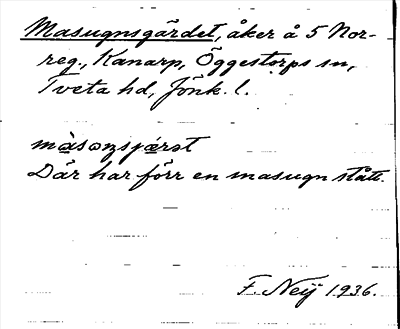 Masugnsgärdet, åker å 5 Nor-
reg., Kanarp, Öggestorps sn,
Tveta hd, Jönk. l.
Där har förr en masugn stått.
F. Neij 1936.